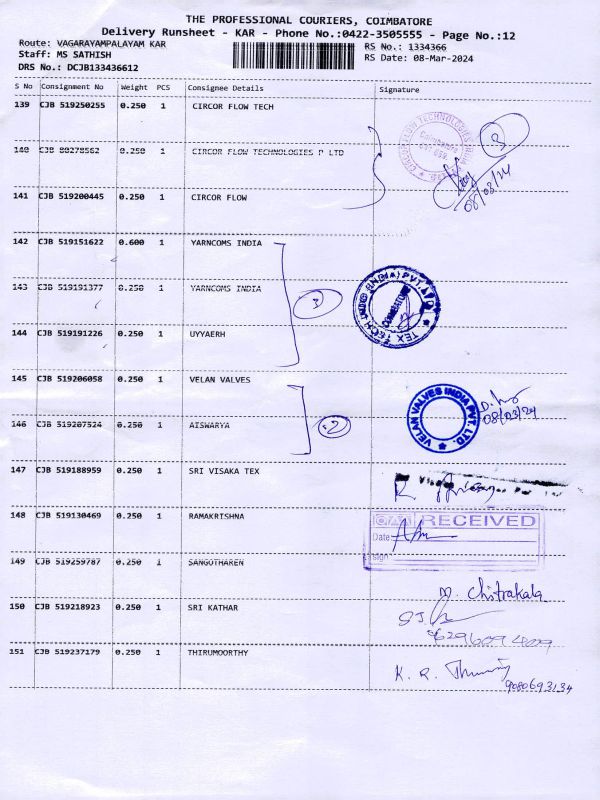 THE PROFESSIONAL COURIERS, COIMBATORE
Delivery Runsheet - KAR - Phone No.:0422-3505555 - Page No.:12
Route: VAGARAYAMPALAYAM KAR
Staff: MS SATHISH
DRS No.: DCJB133436612
RS No.: 1334366
RS Date: 08-Mar-2024
S No Consignment No Weight PCS Consignee Details Signature
139 CJB 519250255 0.250 1 CIRCOR FLOW TECH
140 CJB 80278562 0.250 1 CIRCOR FLOW TECHNOLOGIES P LTD
3
08/03/24
141 CJB 519200445 0.250 1 CIRCOR FLOW
142 CJB 519151622 0.600 1 YARNCOMS INDIA
143 CJB 519191377 0.250 1 YARNCOMS INDIA
3
(INDIA) PVT.
COIMBATORE
TEX TECH
144 CJB 519191226 0.250 1 UYYAERH
145 CJB 519206058 0.250 1 VELAN VALVES
VELAN VALVES INDIA PVT. LTD.
08/03/24
146 CJB 519207524 0.250 1 AISWARYA
2
147 CJB 519188959 0.250 1 SRI VISAKA TEX
148 CJB 519130469 0.250 1 RAMAKRISHNA
RECEIVED
Date
Sign
149 CJB 519259787 0.250 1 SANGOTHAREN
M. Chitrakala
150 CJB 519218923 0.250 1 SRI KATHAR
151 CJB 519237179 0.250 1 THIRUMOORTHY
K. R.
9080693134